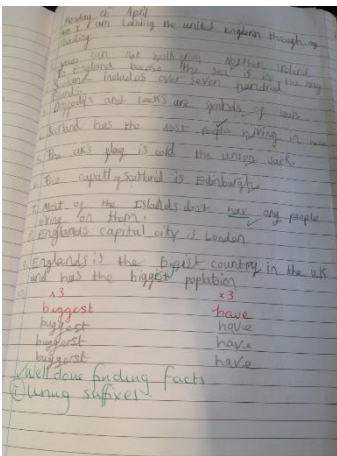 Monday 8th April
I am Landing the united kingdom through my
reading.
you can not walk from Northern Ireland
to England because the sea is in the way
Scotland includes over seven hundred
islands.
and Leeks are symbols of wales
Ireland has the people living in
The uk's flag is the union Jack.
The of Scotland is Edinburgh
Most of the Islands don't hav any people
living on them.
England's capital city is London
England is the bigest country in the uk
and has the biggest poplation
x3 x3
biggest have
biggest have
biggest have
biggest have
Well done finding facts
suffixes